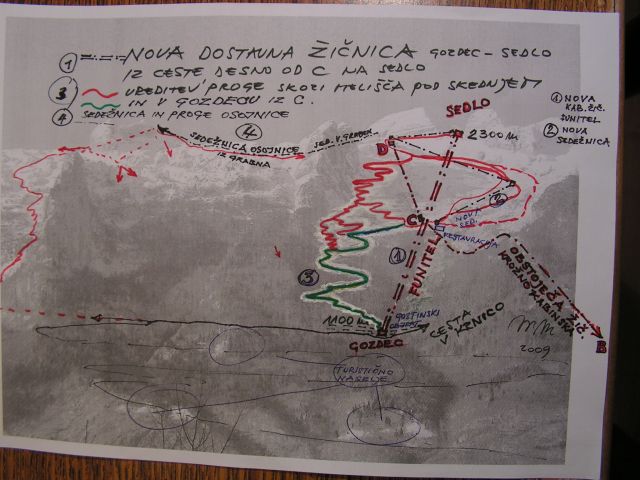 ① NOVA DOSTAVNA ŽIČNICA GOZDEC - SEDLO
IZ CESTE DESNO OD C NA SEDLO
③ UREDITEV PROGE SKOZI MELIŠČA POD SKEDNJEM
IN V GOZDECU IZ C.
④ SEDEŽNICA IN PROGE OSOJNICE
① NOVA
KAB. ŽIČ.
FUNITEL
② NOVA
SEDEŽNICA
SEDLO
2300 M
④
SEDEŽNICA OSOJNICE
IZ GRABNA
SED. V GRABEN
D
②
C
NOVI
SED.
RESTAVRACIJA
①
FUNITEL
③
OBSTOJEČA ŽIČ.
KROŽNO KABINSKA
B
1100 M
GOSTINSKI
GOZDEC
CESTA
V KRNICO
2009
TURISTIČNO
NASELJE